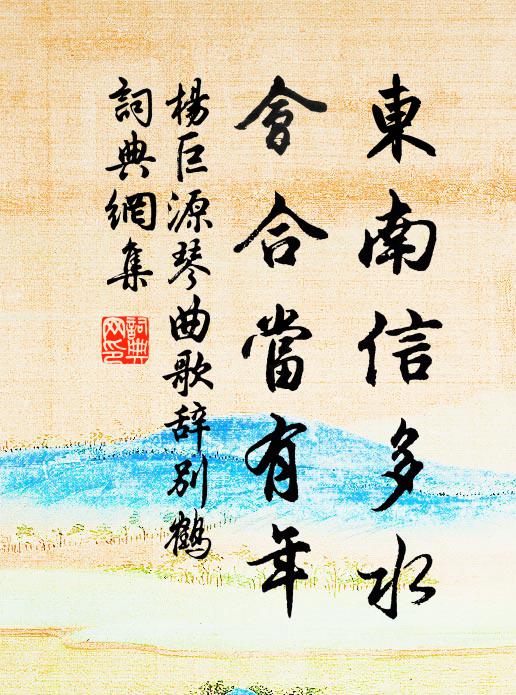 東南信多水
會合當有年
楊巨源琴曲歌辞别鶴
詞典網集
詞典网印